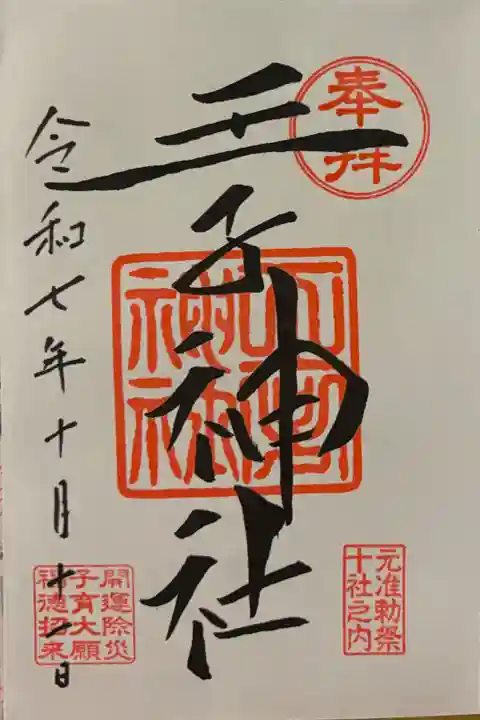 奉拝
元准勅祭
十社之内
王子神社
令和七年十月十一日
開運除災
子育大願
福徳招来